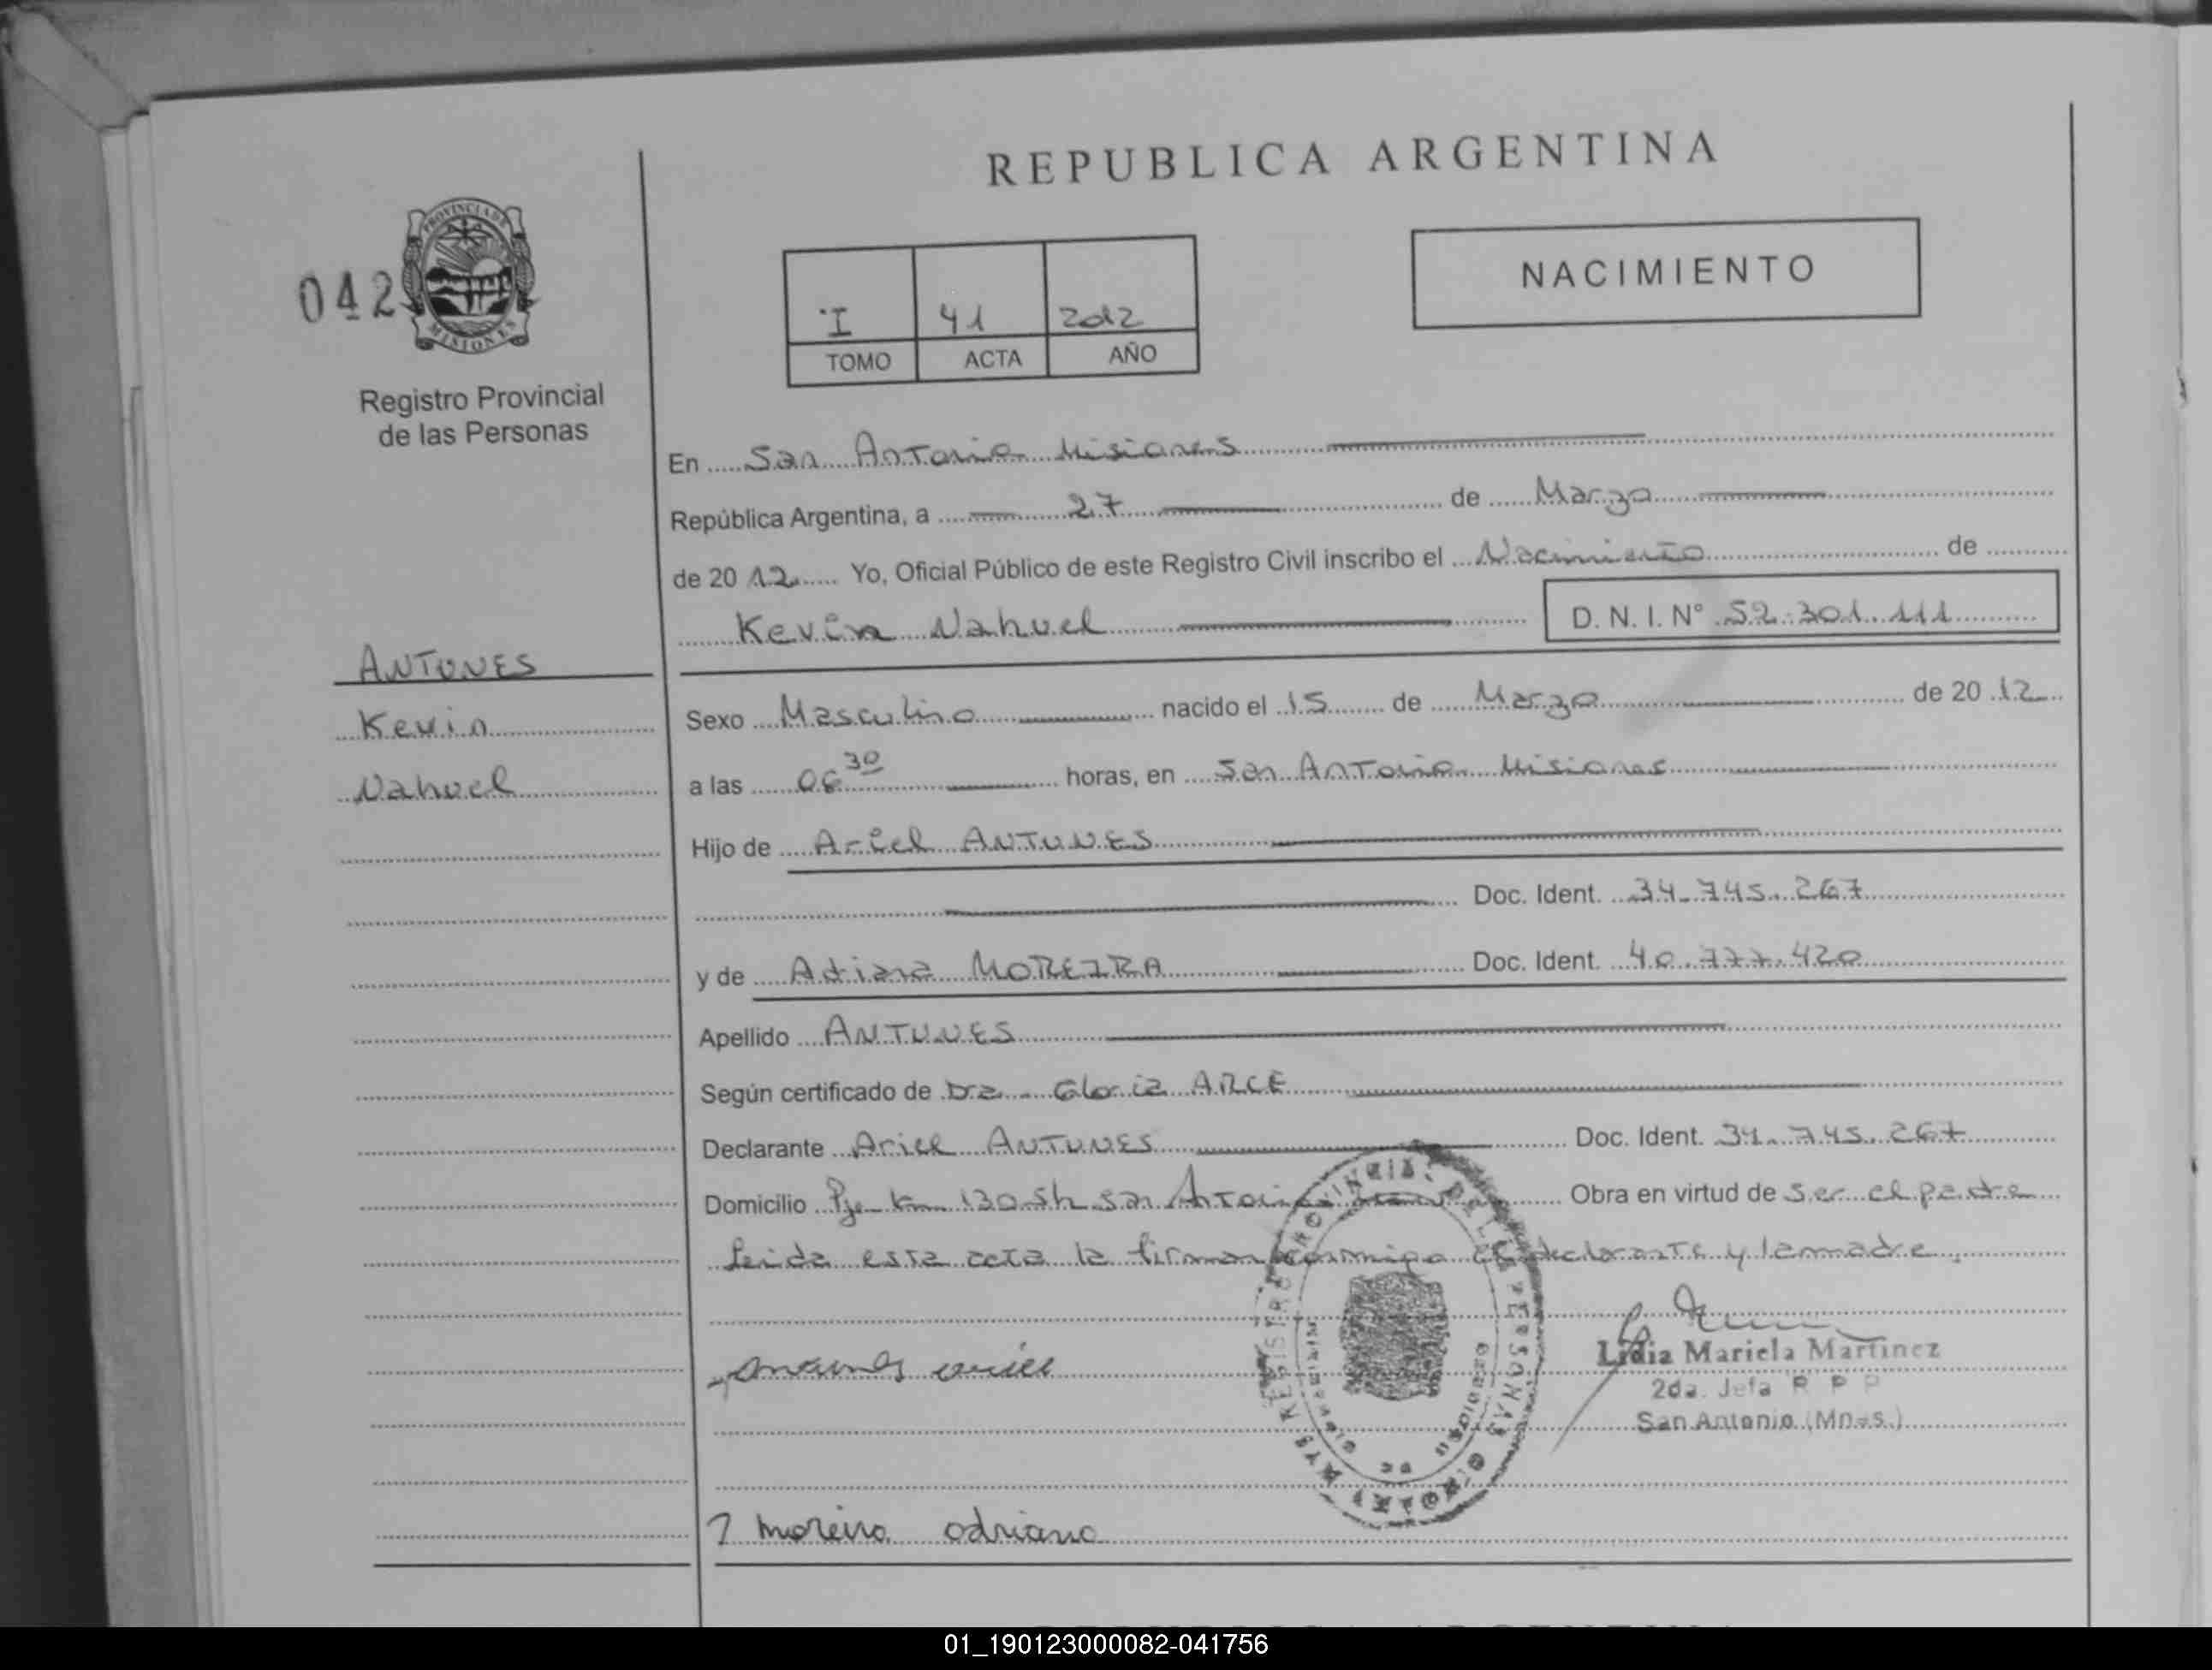 REPUBLICA ARGENTINA
042
PROVINCIA DE
MISIONES
Registro Provincial
de las Personas
I 41 2012
TOMO ACTA AÑO
NACIMIENTO
En San Antonio Misiones
República Argentina, a 27 de Marzo
de 2012 Yo, Oficial Público de este Registro Civil inscribo el Nacimiento de
Kevin Nahuel D. N. I. N° 52.301.111
ANTUNES
Kevin
Nahuel
Sexo Masculino nacido el 15 de Marzo de 2012
a las 06 30 horas, en San Antonio Misiones
Hijo de Ariel ANTUNES
Doc. Ident. 34.745.267
y de Adriana MOREIRA Doc. Ident. 40.777.420
Apellido ANTUNES
Según certificado de Dra. Gloria ARCE
Declarante Ariel ANTUNES Doc. Ident. 34.745.267
Domicilio Pje Km 130 sh San Antonio Obra en virtud de ser el padre
leida esta acta la firman conmigo el declarante y la madre.
antunes ariel
Lidia Mariela Martinez
2da. Jefa R P P
San Antonio (Mnes.)
REGISTRO PROVINCIAL DE LAS PERSONAS
moreira adriana
01_190123000082-041756